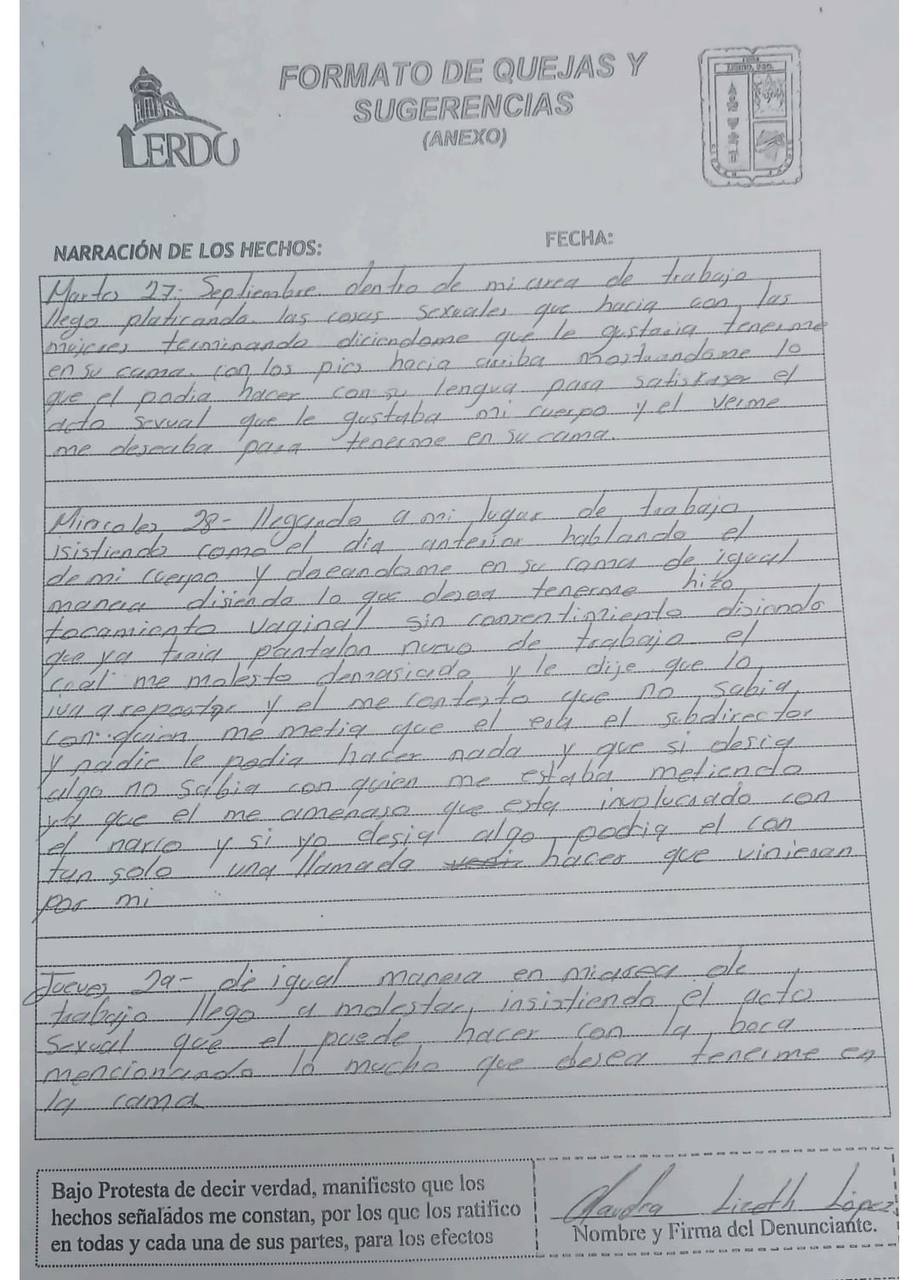 LERDO
FORMATO DE QUEJAS Y
SUGERENCIAS
(ANEXO)
LERDO, DGO.
NARRACIÓN DE LOS HECHOS:
FECHA:
Martes 27: Septiembre. dentro de mi area de trabajo
llego platicando las cosas sexuales que hacia con las
mujeres terminando diciendome que le gustaria tenerme
en su cama. con los pies hacia arriba mostrandome lo
que el podia hacer con su lengua para satisfaser el
acto sexual que le gustaba mi cuerpo y el verme
me deseaba para tenerme en su cama.
Miercoles 28- llegando a mi lugar de trabajo
isistiendo como el dia anterior hablando el
de mi cuerpo y deseandome en su cama de igual
manera disiendo lo que desea tenerme hizo
tocamiento vaginal sin consentimiento disiendo
que ya traia pantalon nuevo de trabajo el
cual me molesto demasiado y le dije que lo
iva a reportar y el me contesto que no sabia
con quien me metia que el era el subdirector
y nadie le podia hacer nada y que si desia
algo no sabia con quien me estaba metiendo
que el me amenaso que esta involucrado con
el narco y si yo desia algo podria el con
tan solo una llamada hacer que vinieran
por mi
Jueves 29- de igual manera en mi area de
trabajo llego a molestar, insistiendo el acto
sexual que el puede hacer con la boca
mencionando lo mucho que desea tenerme en
la cama
Bajo Protesta de decir verdad, manifiesto que los
hechos señalados me constan, por los que los ratifico
en todas y cada una de sus partes, para los efectos
Lizeth López
Nombre y Firma del Denunciante.